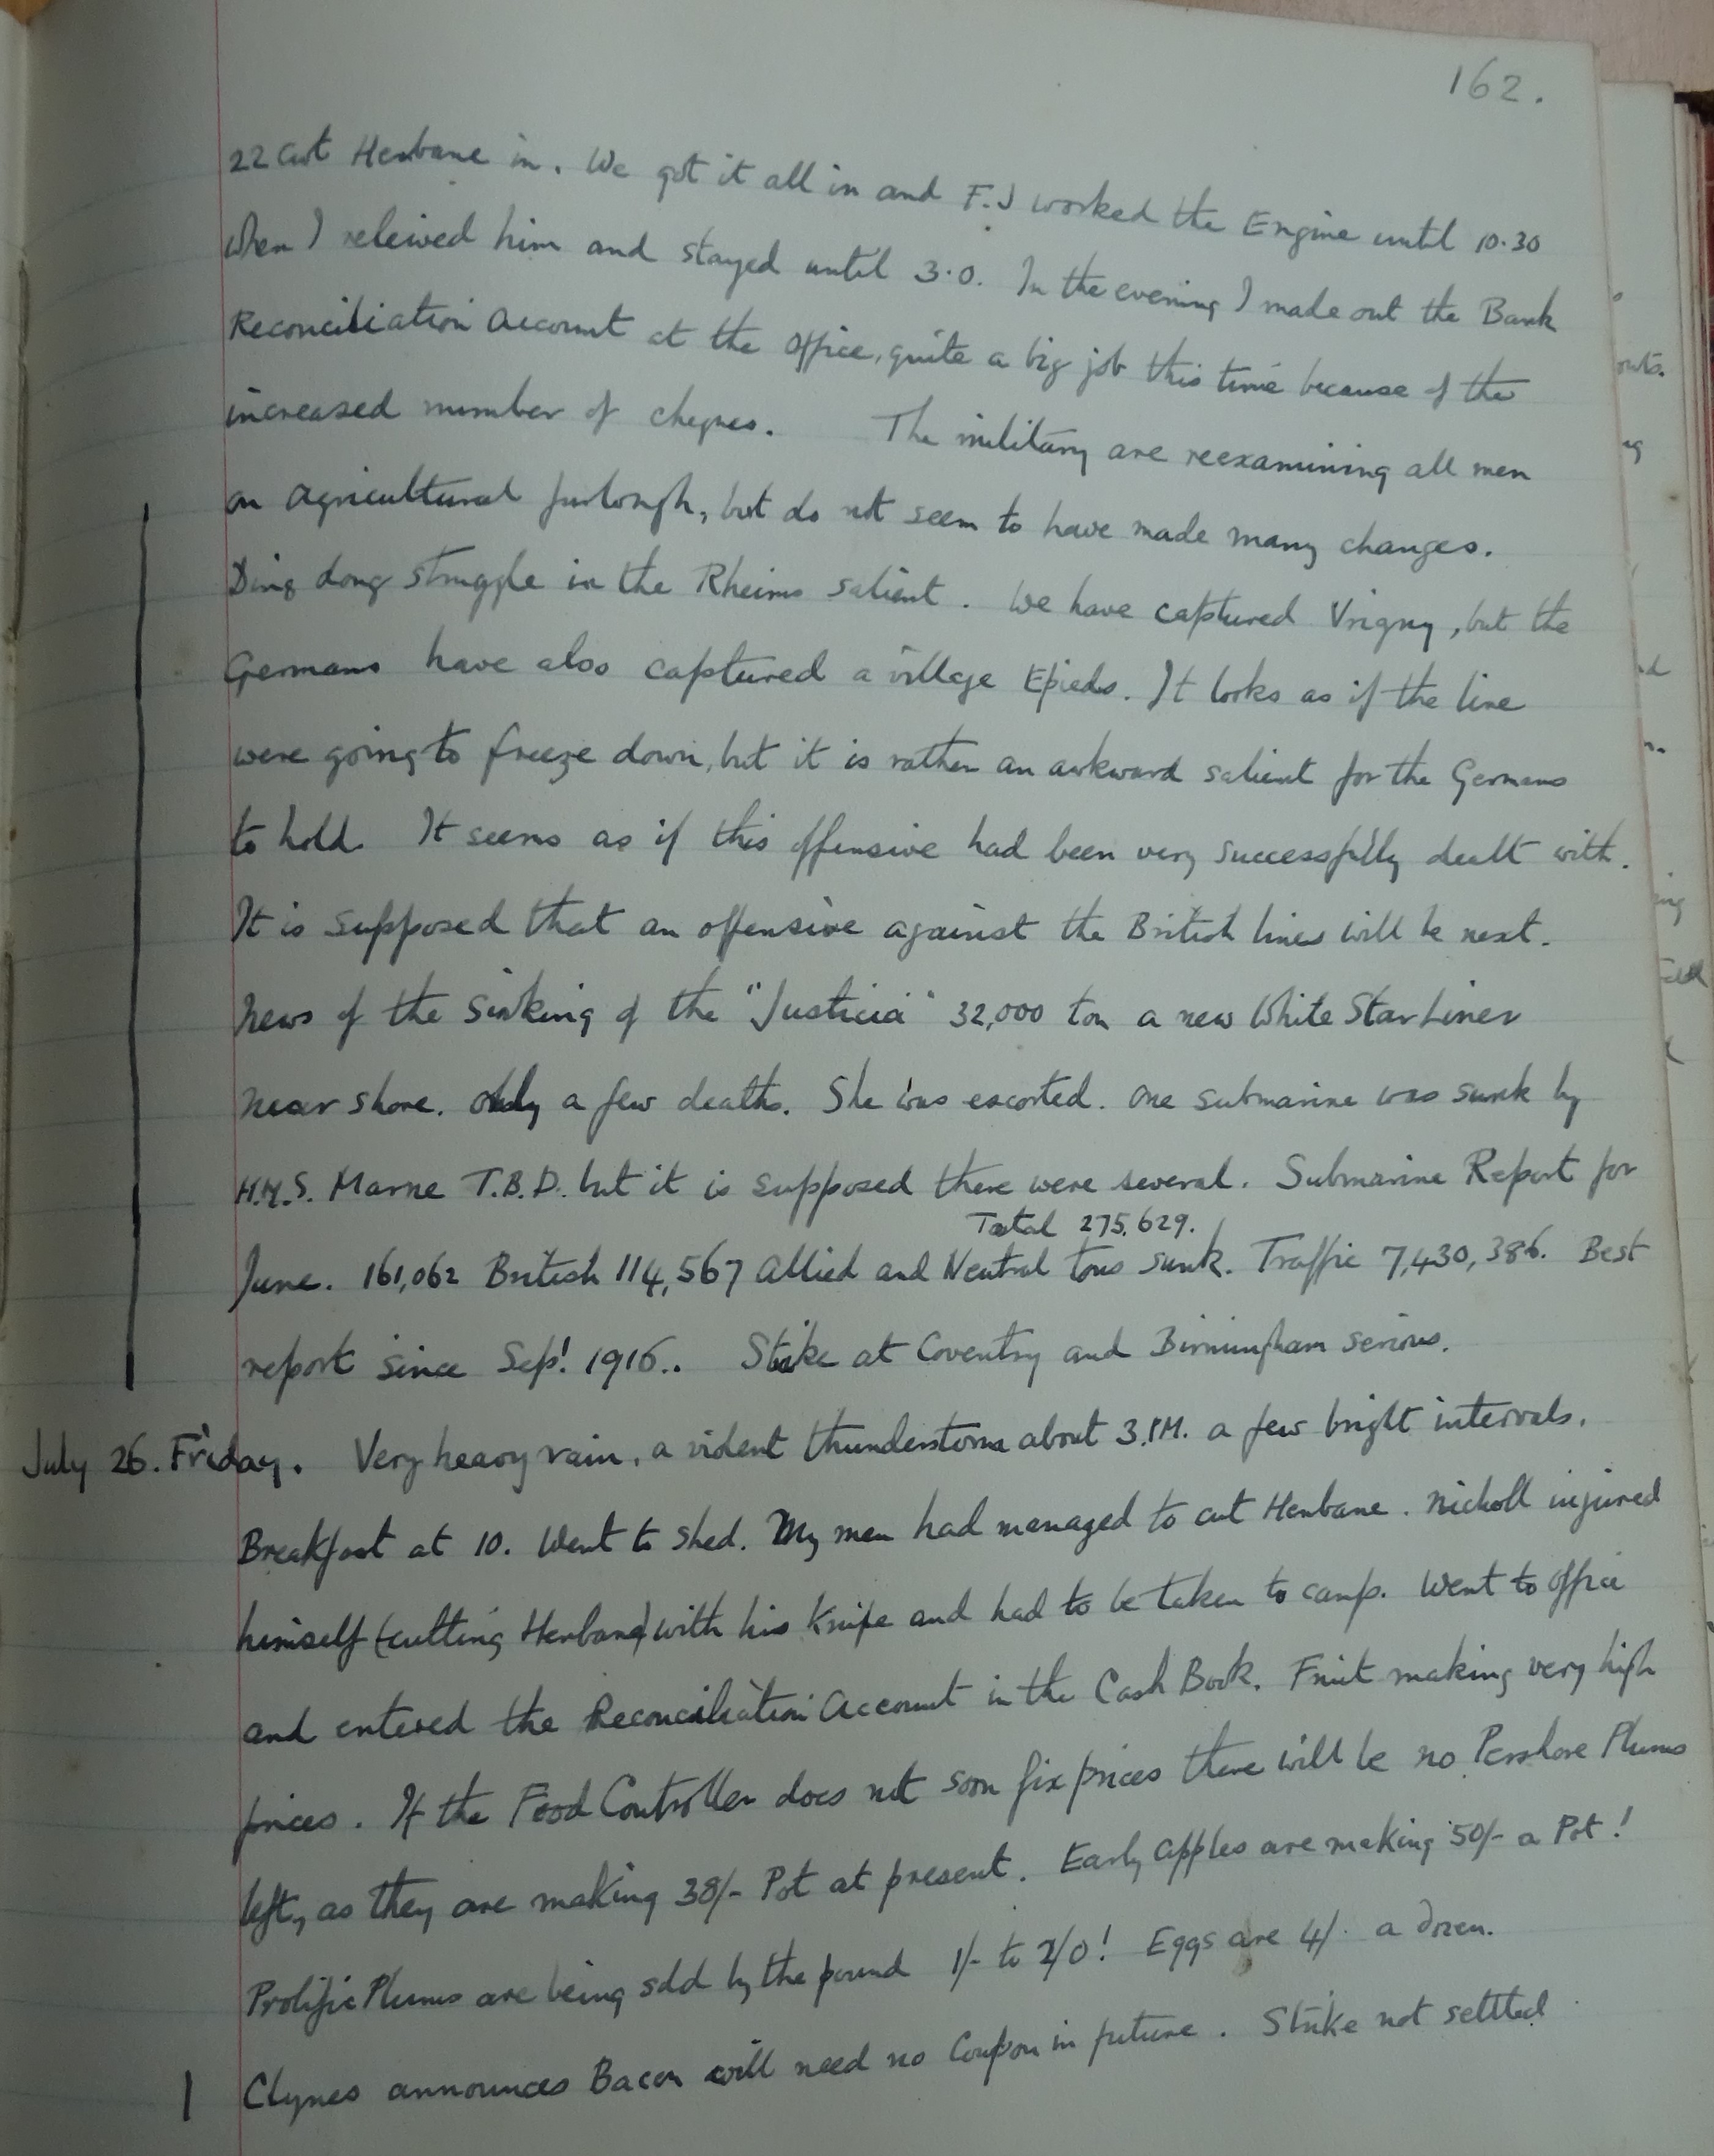 162.
22 Cwt Henbane in. We got it all in and F.J worked the Engine until 10.30
when I releived him and stayed until 3.0. In the evening I made out the Bank
Reconciliation Account at the office, quite a big job this time because of the
increased number of cheques. The military are reexamining all men
on agricultural furlough, but do not seem to have made many changes.
Ding dong struggle in the Rheims salient. We have captured Vrigny, but the
Germans have also captured a village Epieds. It looks as if the line
were going to freeze down, but it is rather an awkward salient for the Germans
to hold. It seems as if this offensive had been very successfully dealt with.
It is supposed that an offensive against the British lines will be next.
News of the sinking of the "Justicia" 32,000 ton a new White Star Liner
near shore. Only a few deaths. She was escorted. One submarine was sunk by
H.M.S. Marne T.B.D. but it is supposed there were several. Submarine Report for
Total 275,629.
June. 161,062 British 114,567 Allied and Neutral tons sunk. Traffic 7,430,386. Best
report since Sept. 1916.. Strike at Coventry and Birmingham serious.
July 26. Friday. Very heavy rain, a violent thunderstorm about 3.PM. a few bright intervals.
Breakfast at 10. Went to shed. My men had managed to cut Henbane. Nicholl injured
himself (cutting Henbane) with his Knife and had to be taken to camp. Went to office
and entered the Reconciliation Account in the Cash Book. Fruit making very high
prices. If the Food Controller does not soon fix prices there will be no Pershore Plums
left, as they are making 38/- Pot at present. Early apples are making 50/- a Pot!
Prolific Plums are being sold by the pound 1/- to 2/0! Eggs are 4/- a dozen.
Clynes announces Bacon will need no Coupon in future. Strike not settled